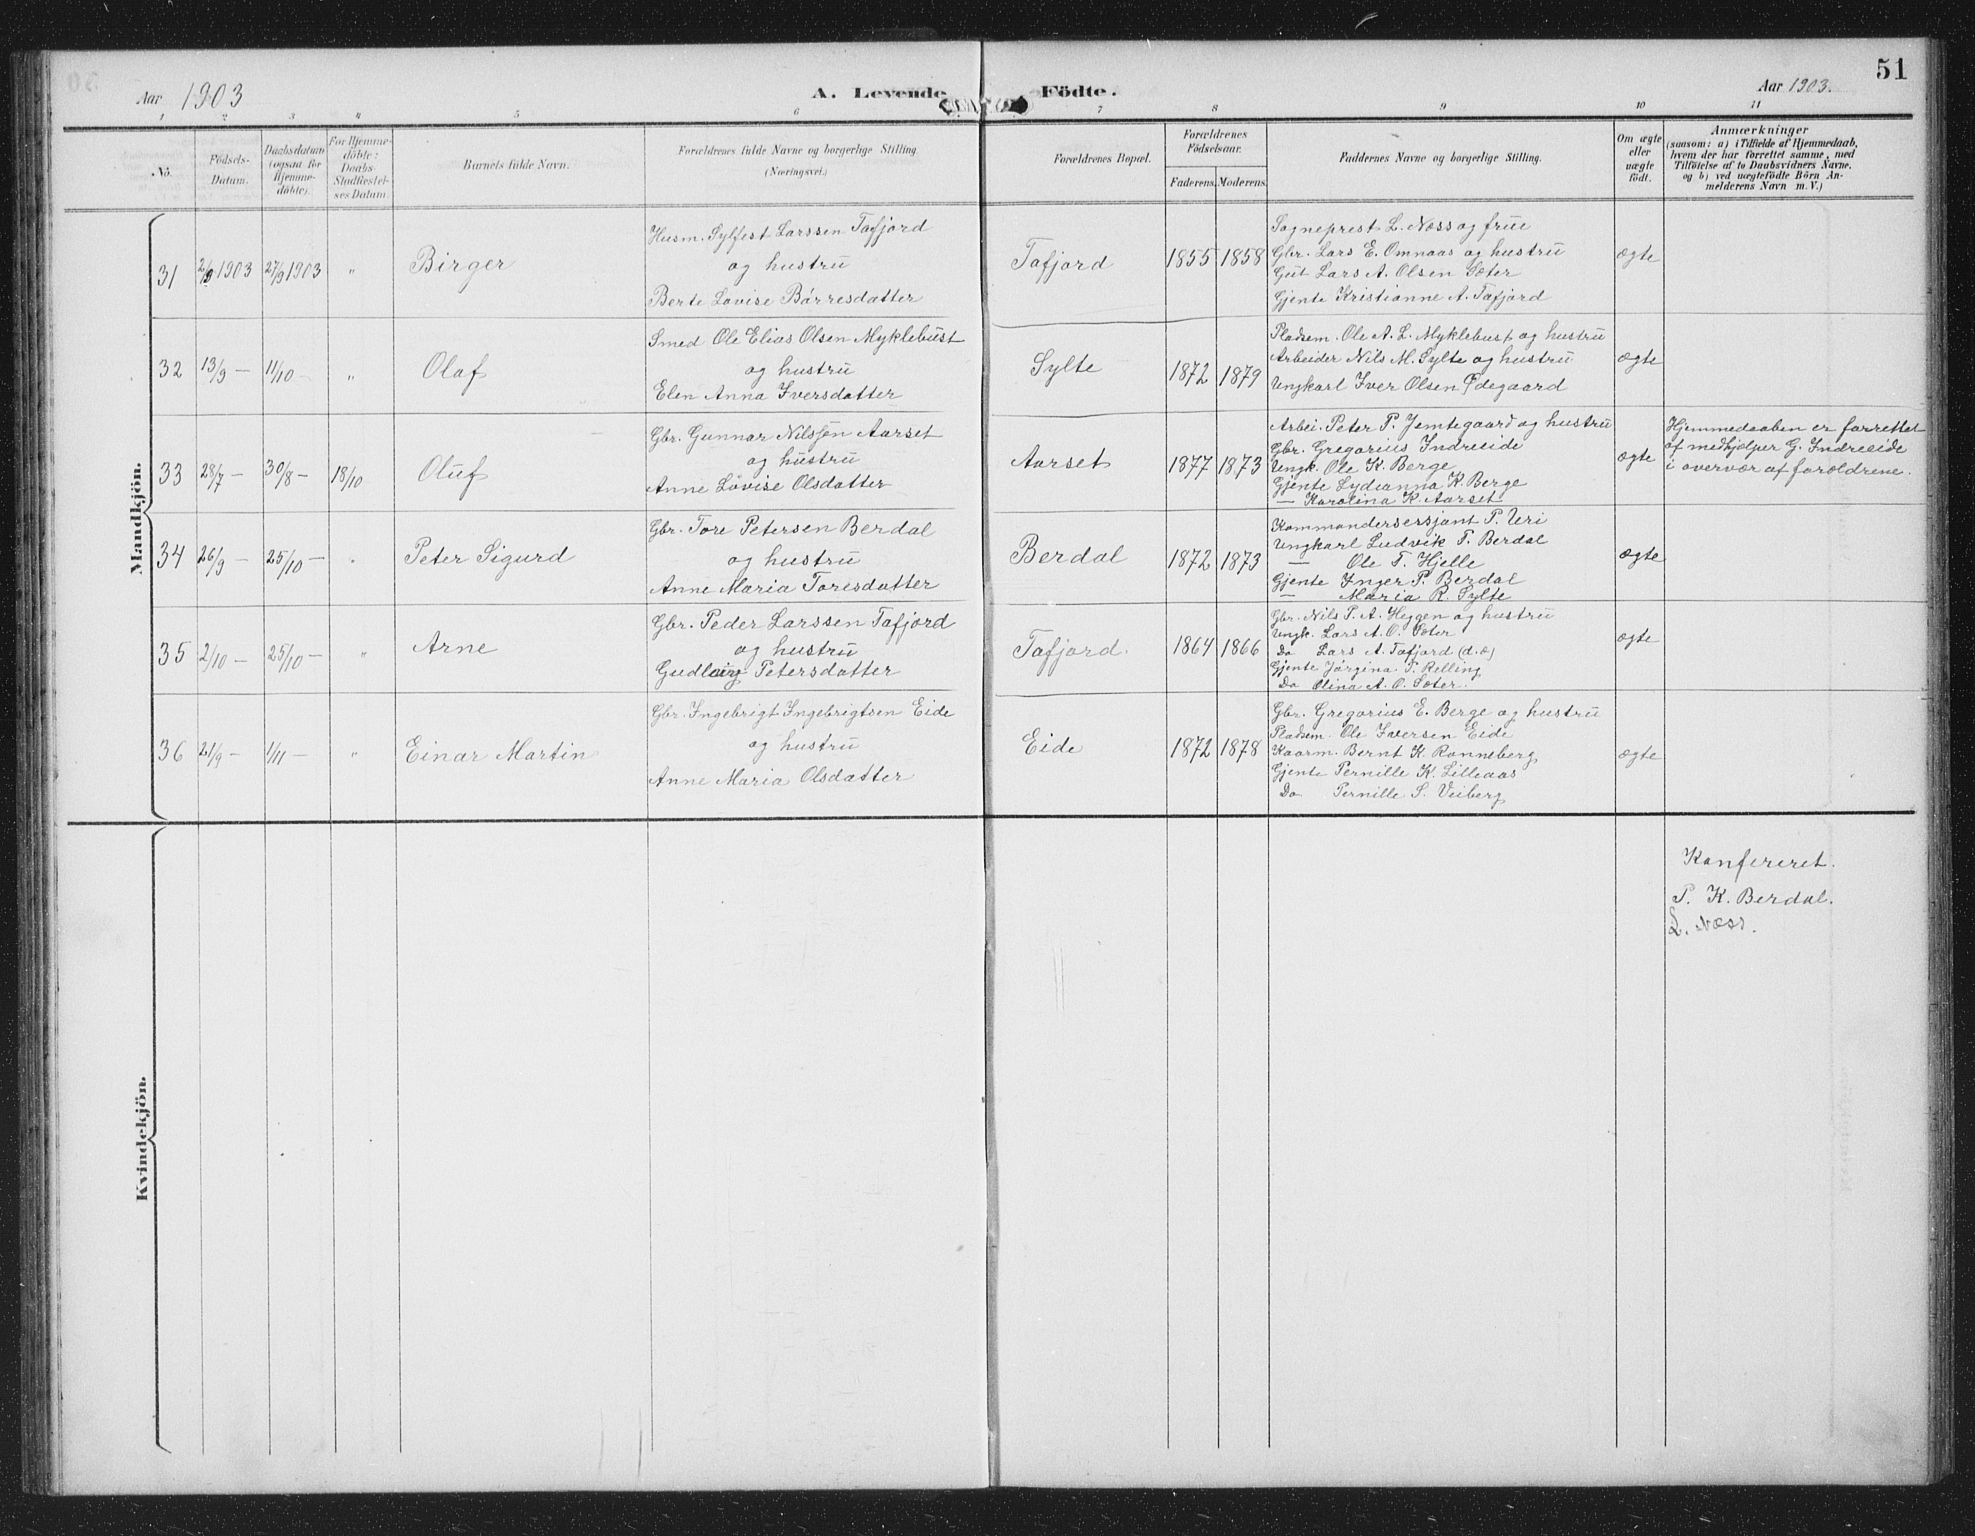 51
Aar 1903
A. Levende Födte.
Aar 1903.
1 2 3 4 5 6 7 8 9 10 11
No.
Födsels-Datum.
Daabsdatum (ogsaa for Hjemme-döbte).
For Hjemme-döbte: Daabs-Stadfæstel-ses Datum.
Barnets fulde Navn.
Forældrenes fulde Navne og borgerlige Stilling. (Næringsvei.)
Forældrenes Bopæl.
Forældrenes Födselsaar.
Faderens. Moderens.
Faddernes Navne og borgerlige Stilling.
Om ægte eller uægte födt.
Anmærkninger
(saasom: a) i Tilfælde af Hjemmedaab,
hvem der har forrettet samme, med
Tilföielse af to Daabsvidners Navne,
og b) ved uægtefödte Börn An-
melderens Navn m. V.)
Mandkjön.
31 2/9 1903 27/9 1903 " Birger
Husm. Sylfest Larssen Tafjord
og hustru
Berte Lovise Börresdatter
Tafjord 1855 1858
Sogneprest L. Næss og frue
Gbr. Lars E. Omnaas og hustru
Gut Lars A. Olsen Sæter
Gjente Kristianne A. Tafjord
ægte
32 13/9 — 11/10 — " Olaf
Smed Ole Elias Olsen Myklebust
og hustru
Elen Anna Iversdatter
Sylte 1872 1879
Pladsm. Ole A. L. Myklebust og hustru
Arbeider Nils M. Sylte og hustru
Ungkarl Iver Olsen Ødegaard
ægte
33 28/7 — 30/8 — 18/10 Oluf
Gbr. Gunnar Nilssen Aarset
og hustru
Anne Lovise Olsdatter
Aarset 1877 1873
Arbei. Peter P. Jemtegaard og hustru
Gbr. Gregorius Indreeide
Ungk. Ole K. Berge
Gjente Lydianna K. Berge
— Karolina K. Aarset
ægte
Hjemmedaaben er forrettet
af medhjælper G. Indreeide
i overvær af forældrene.
34 26/9 — 25/10 — " Peter Sigurd
Gbr. Tore Petersen Berdal
og hustru
Anne Maria Toresdatter
Berdal 1872 1873
Kommandersersjant P. Uri
Ungkarl Ludvik T. Berdal
— Ole T. Hjelle
Gjente Inger P. Berdal
— Maria R. Sylte
ægte
35 2/10 — 25/10 — " Arne
Gbr. Peder Larssen Tafjord
og hustru
Gudlaug Petersdatter
Tafjord. 1864 1866
Gbr. Nils P. A. Heggen og hustru
Ungk. Lars A. O. Sæter
Do Lars A. Tafjord (d.æ)
Gjente Jørgina P. Relling
Do Olina A. O. Sæter.
ægte
36 21/9 — 1/11 — " Einar Martin
Gbr. Ingebrigt Ingebrigtsen Eide
og hustru
Anne Maria Olsdatter
Eide 1872 1878
Gbr. Gregorius E. Berge og hustru
Pladsm. Ole Iversen Eide
Kaarm. Bernt K. Ronneberg
Gjente Pernille K. Lilleaas
Do Pernille S. Veiberg
ægte
Kvindekjön.
Konfereret.
P. K. Berdal.
L. Næss.